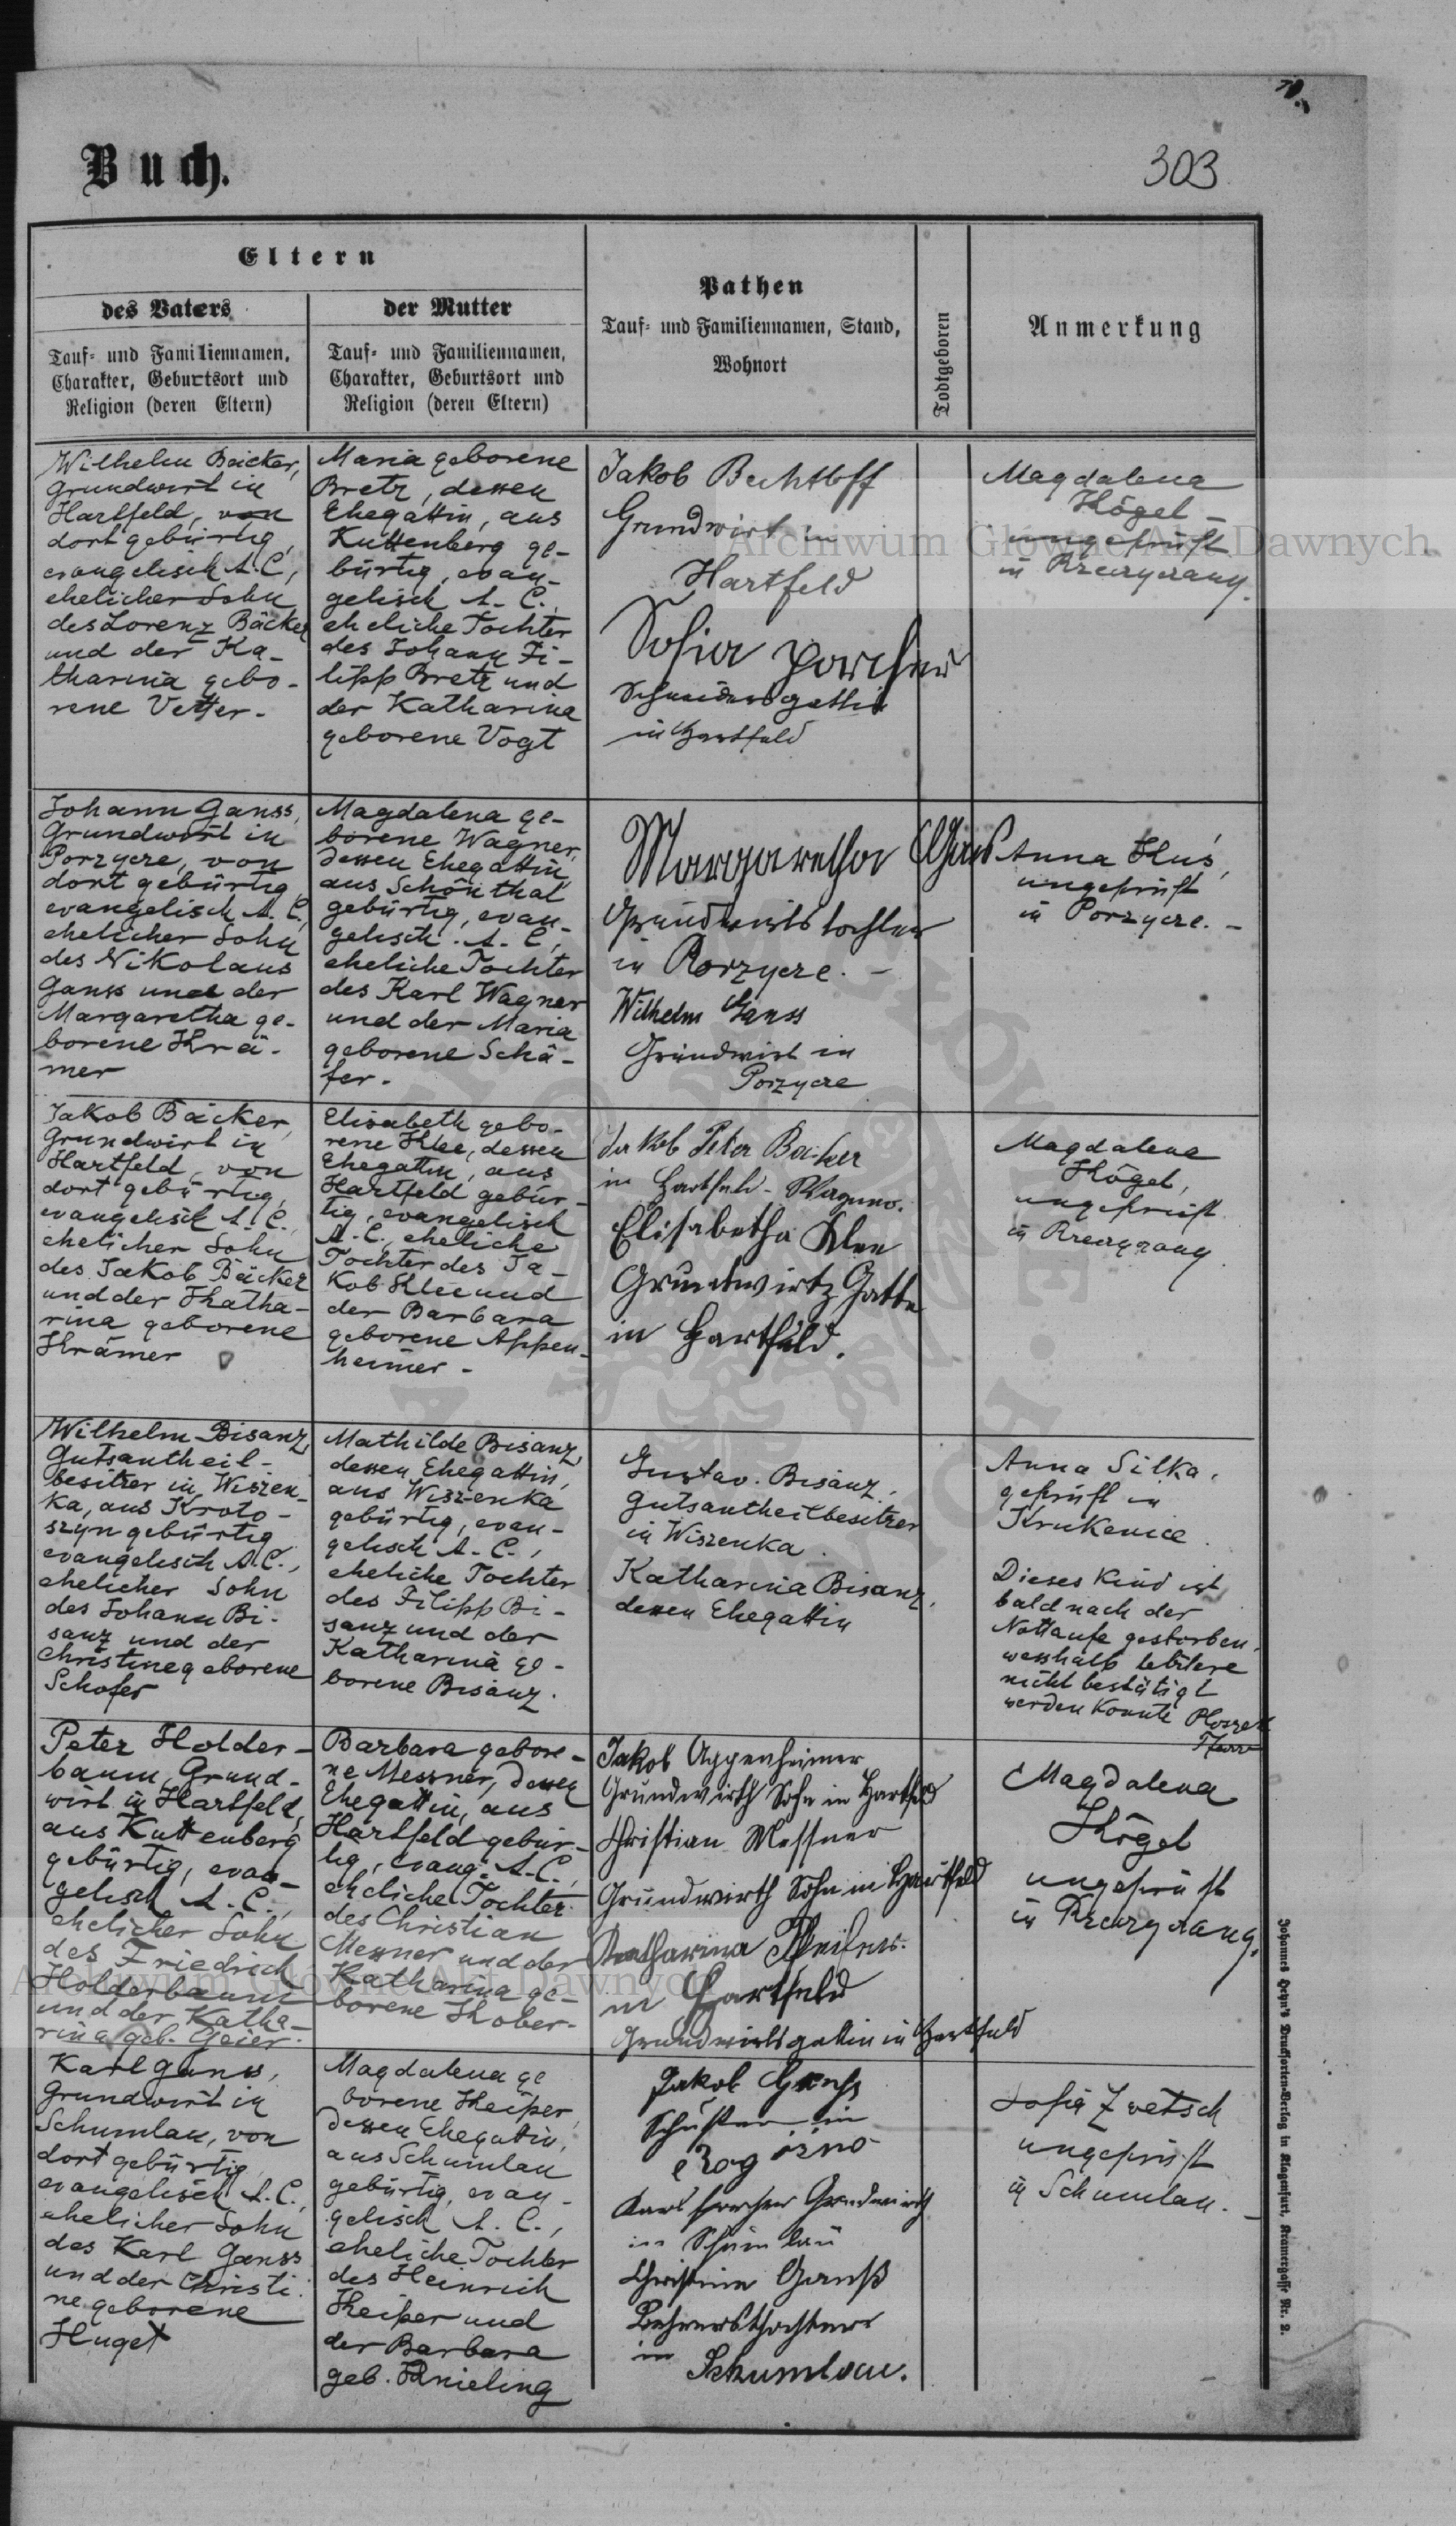 Buch.
303
Eltern
des Vaters
Tauf- und Familiennamen,
Charakter, Geburtsort und
Religion (deren Eltern)
der Mutter
Tauf- und Familiennamen,
Charakter, Geburtsort und
Religion (deren Eltern)
Pathen
Tauf- und Familiennamen, Stand,
Wohnort
Todtgeboren
Anmerkung
Wilhelm Bäcker,
Grundwirt in
Hartfeld, von
dort gebürtig,
evangelisch A.C.,
ehelicher Sohn
des Lorenz Bäcker
und der Ka-
tharina gebo-
rene Vetter.
Maria geborene
Bretz, dessen
Ehegattin, aus
Kuttenberg ge-
bürtig, evan-
gelisch A. C.,
eheliche Tochter
des Johann Fi-
lipp Bretz und
der Katharina
geborene Vogt
Jakob Bechtloff
Grundwirt in
Hartfeld
Sofia
Schneidersgattin
in Hartfeld
Magdalena
Kögel -
ungeprüft
in
Johann Ganss,
Grundwirt in
Porzycze, von
dort gebürtig,
evangelisch A. C.,
ehelicher Sohn
des Nikolaus
Ganss und der
Margaretha ge-
borene Krä-
mer
Magdalena ge-
borene Wagner,
dessen Ehegattin,
aus Schönthal
gebürtig, evan-
gelisch A. C.,
eheliche Tochter
des Karl Wagner
und der Maria
geborene Schä-
fer.
Margaretha Gans
Grundwirtstochter
in Porzycze. -
Wilhelm Ganss
Grundwirt in
Porzycze
Anna Hus,
ungeprüft
in Porzycze. -
Jakob Bäcker,
Grundwirt in
Hartfeld, von
dort gebürtig,
evangelisch A. C.,
ehelicher Sohn
des Jakob Bäcker
und der Khatha-
rina geborene
Krämer
Elisabeth gebo-
rene Klee, dessen
Ehegattin, aus
Hartfeld gebür-
tig, evangelisch
A. C., eheliche
Tochter des Ja-
kob Klee und
der Barbara
geborene Appen-
heimer -
Jakob Peter Bäcker
in Hartfeld - Wagner.
Elisabetha Klee
Grundwirtz Gatte
in Hartfeld.
Magdalena
Kögel,
ungeprüft
in
Wilhelm Bisanz,
Gutsantheil-
besitzer in Wiszen-
ka, aus Kroto-
szyn gebürtig
evangelisch A.C.,
ehelicher Sohn
des Johann Bi-
sanz und der
Christine geborene
Schofer
Mathilde Bisanz,
dessen Ehegattin,
aus Wiszenka
gebürtig, evan-
gelisch A. C.,
eheliche Tochter
des Filipp Bi-
sanz und der
Katharina ge-
borene Bisanz.
Gustav Bisanz,
Gutsantheilbesitzer
in Wiszenka.
Katharina Bisanz,
dessen Ehegattin
Anna Silka,
geprüft in
Krukenice.
Dieses Kind ist
bald nach der
Nottaufe gestorben,
wesshalb letztere
nicht bestätigt
werden konnte
Pfarrer
Peter Holder-
baum, Grund-
wirt in Hartfeld,
aus Kuttenberg
gebürtig, evan-
gelisch A. C.,
ehelicher Sohn
des Friedrich
Holderbaum
und der Katha-
rina geb. Geier.
Barbara gebore-
ne Messner, dessen
Ehegattin, aus
Hartfeld gebür-
tig, evang. A.C.,
eheliche Tochter
des Christian
Messner und der
Katharina ge-
borene Kober.
Jakob Appenheimer
Grundwirth Sohn in Hartfeld
Christian Messner
Grundwirth Sohn in Hartfeld
Katharina
in Hartfeld
Grundwirtsgattin in Hartfeld
Magdalena
Kögel
ungeprüft
in
Karl Ganss,
Grundwirt in
Schumlau, von
dort gebürtig,
evangelisch A.C.,
ehelicher Sohn
des Karl Ganss
und der Christi-
ne geborene
Huget
Magdalena ge
borene Keiper,
dessen Ehegattin,
aus Schumlau
gebürtig, evan-
gelisch A. C.,
eheliche Tochter
des Heinrich
Keiper und
der Barbara
geb. Knieling
Jakob Ganss
Schuster in
Rogózno
Karl Grundwirth
in Schumlau
Christina Ganß
Lehrersthochter
in Schumlau.
Sofia Zwetsch
ungeprüft
in Schumlau. -
Johannes Heyn's Drucksorten-Verlag in Klagenfurt, Kramergasse Nr. 2.
Archiwum Główne Akt Dawnych
Archiwum Główne Akt Dawnych